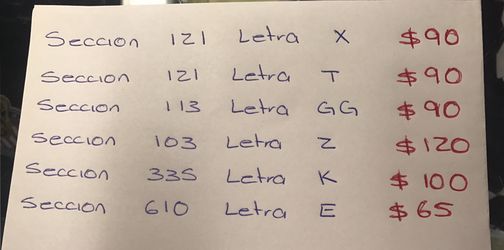 Seccion 121 Letra X $90
Seccion 121 Letra T $90
Seccion 113 Letra GG $90
Seccion 103 Letra Z $120
Seccion 335 Letra K $100
Seccion 610 Letra E $65